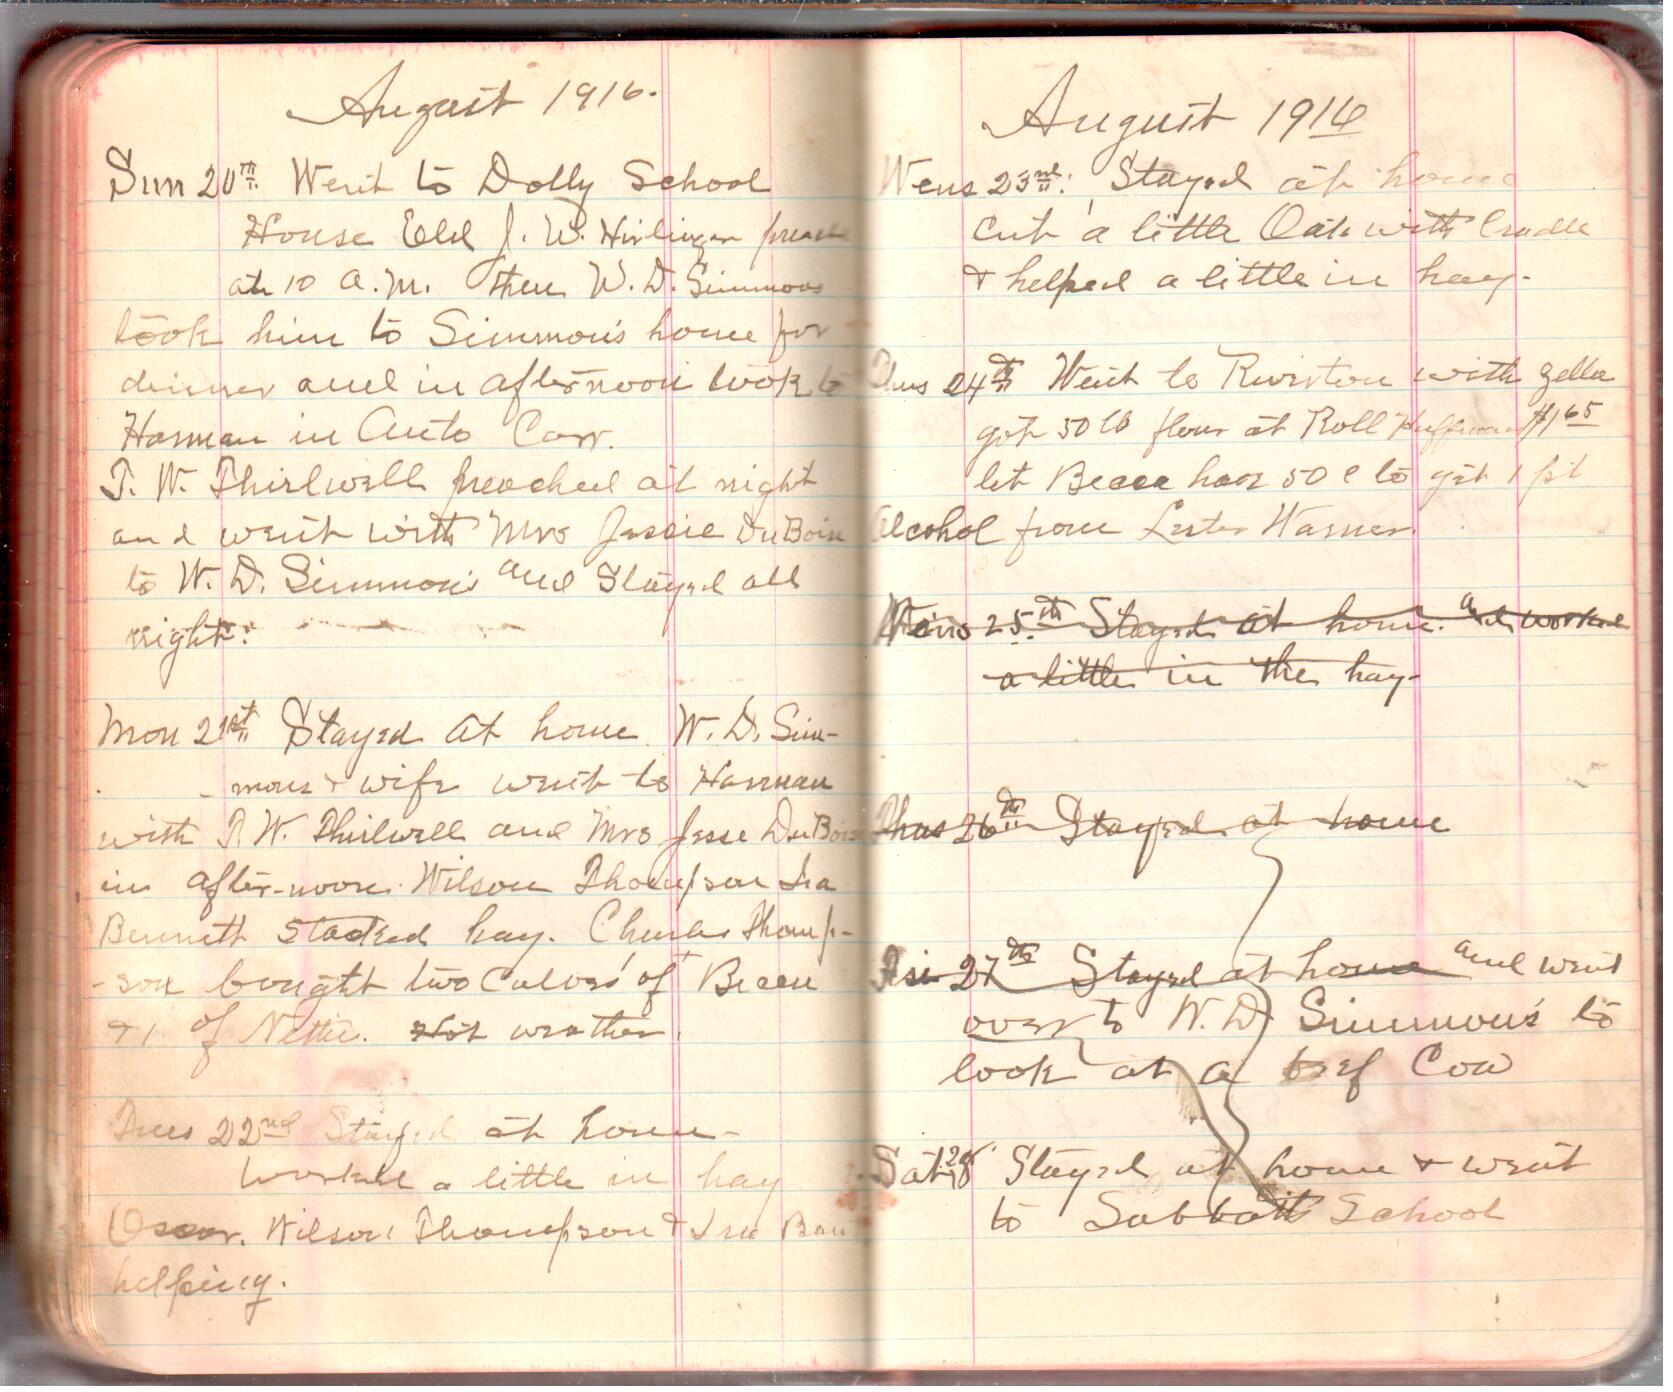 August 1916.
Sun 20th Went to Dolly School
House Eld J. W. preach
at 10 A.M. then W. D. Simmons
took him to Simmon's home for
dinner and in afternoon took to
Harman in Auto Carr.
T. W. Thirlwell preached at night
and went with Mrs Jessie DuBois
to W. D. Simmon's and Stayed all
night.
Mon 21st Stayed at home W. D. Sim-
-mons & wife went to Harman
with T. W. Thirlwell and Mrs Jesse DuBois
in after-noon. Wilson Thompson Ira
Bennett stacked hay. Charles Thomp-
-son bought two Calves of
& 1 of Nettie. Hot weather.
Tues 22nd Stayed at home-
worked a little in hay
Oscar. Wilson Thompson & Ira
helping.
August 1916
Wens 23rd. Stayed at home
Cut a little Oats with Cradle
& helped a little in hay.
Thus 24th Went to Riverton with Zella
got 50 lb flour at Roll Huffman $1 65
let have 50 c to get 1 pt
Alcohol from Lester Warner.
25th Stayed at home. and worked
a little in the hay-
Thus 26th Stayed at home
Fri 27th Stayed at home and went
over to W. D. Simmon's to
look at a bef Cow
Sat 28 Stayed at home & went
to Sabbath School